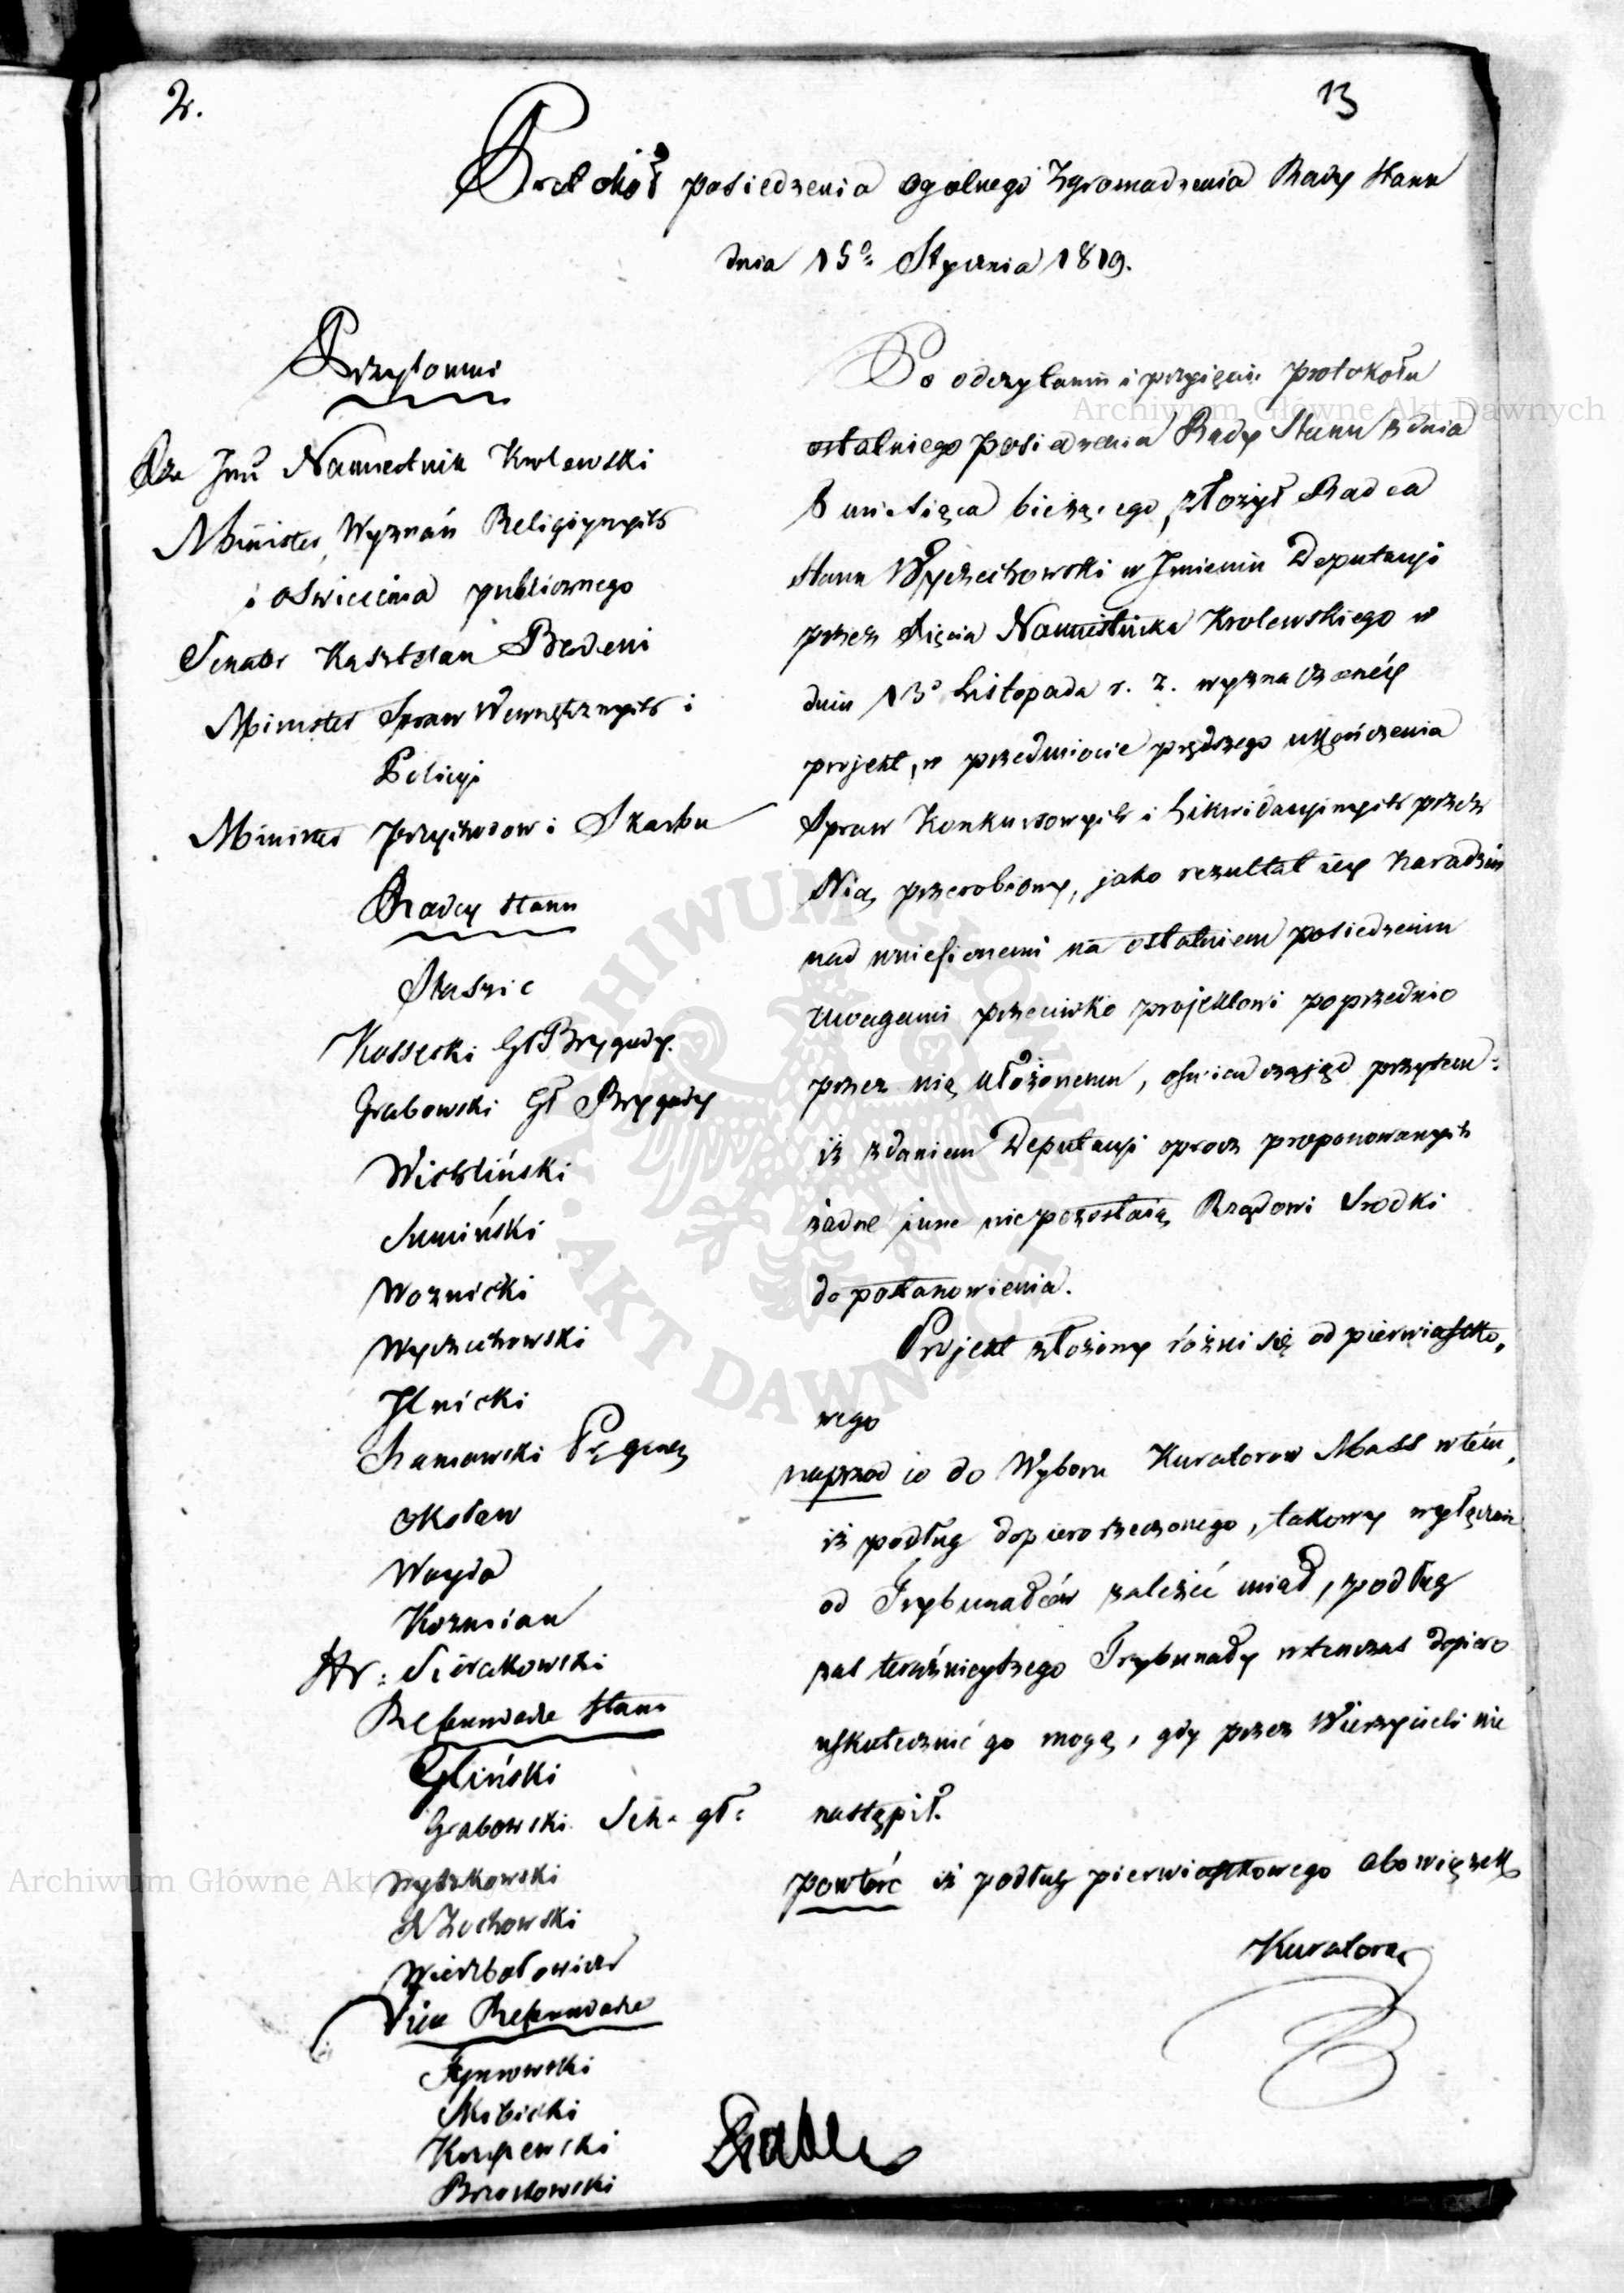 2.
13
Protokół posiedzenia ogolnego Zgromadzenia Rady Stanu
dnia 15º Stycznia 1819.
Przytomni
JOX Namiestnik Krolewski
Minister Wyznań Religiynych
i oswiecenia publicznego
Senator Kasztelan Badeni
Minister Spraw Wewnętrznych i
Policyi
Minister Przychodow i Skarbu
Radcy Stanu
Staszic
Kossecki Gł Brygady.
Grabowski Gł Brygady
Wichliński
Sumiński
Woznicki
Wyczechowski
Ilnicki
Szaniawski
Okołow
Woyda
Kozmian
Hr: Sierakowski
Referendarze Stanu
Gliński
Grabowski Sek. gł:
Wyszkowski
Żochowski
Wierzbołowicz
Vice Referendarze
Tymowski
Skibicki
Krysiewski
Brzostowski
Po odczytaniu i przyięciu protokołu
ostatniego posiedzenia Rady Stanu z dnia
8 miesiąca bieżącego, złożył Radca
Stanu Wyczechowski w Jmieniu Deputacyi
przez Xięcia Namiestnika Krolewskiego w
dniu 13º Listopada r. z. wyznaczoney
projekt, w przedmiocie prędszego ukończenia
Spraw Konkursowych i Likwidacyinych przez
Nią przerobiony, jako rezultat iey naradzeń
nad wniesionemi na ostatniem posiedzeniu
uwagami przeciwko projektowi poprzednio
przez nią ułożonemu, oświadczając przytem:
iż zdaniem Deputacyi oprocz proponowanych
żadne inne niepozostaią Rządowi Srodki
do postanowienia.
Projekt złożony różni się od pierwiastko,
wego
naprzod co do Wyboru Kuratorow Mass w tém,
iż podług dopiero rzeczonego, takowy wyłącznie
od Trybunałów zależéć miał, podług
zas teraźnieyszego Trybunały wtenczas dopiero
uskutecznić go mogą, gdy przez Wierzycieli nie
nastąpił.
powtóre iż podług pierwiastkowego obowiązek
Kuratora
Archiwum Główne Akt Dawnych
Archiwum Główne Akt Dawnych
ARCHIWUM GŁÓWNE AKT DAWNYCH